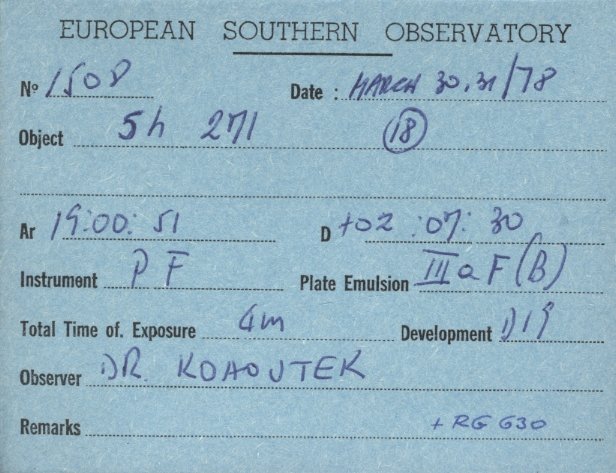 EUROPEAN SOUTHERN OBSERVATORY
Nº 1508 Date : MARCH 30.31/78
Object Sh 271 18
Ar 19:00:51 D +02:07:30
Instrument PF Plate Emulsion IIIaF(B)
Total Time of. Exposure 4m Development D19
Observer DR. KOHOUTEK
Remarks + RG 630